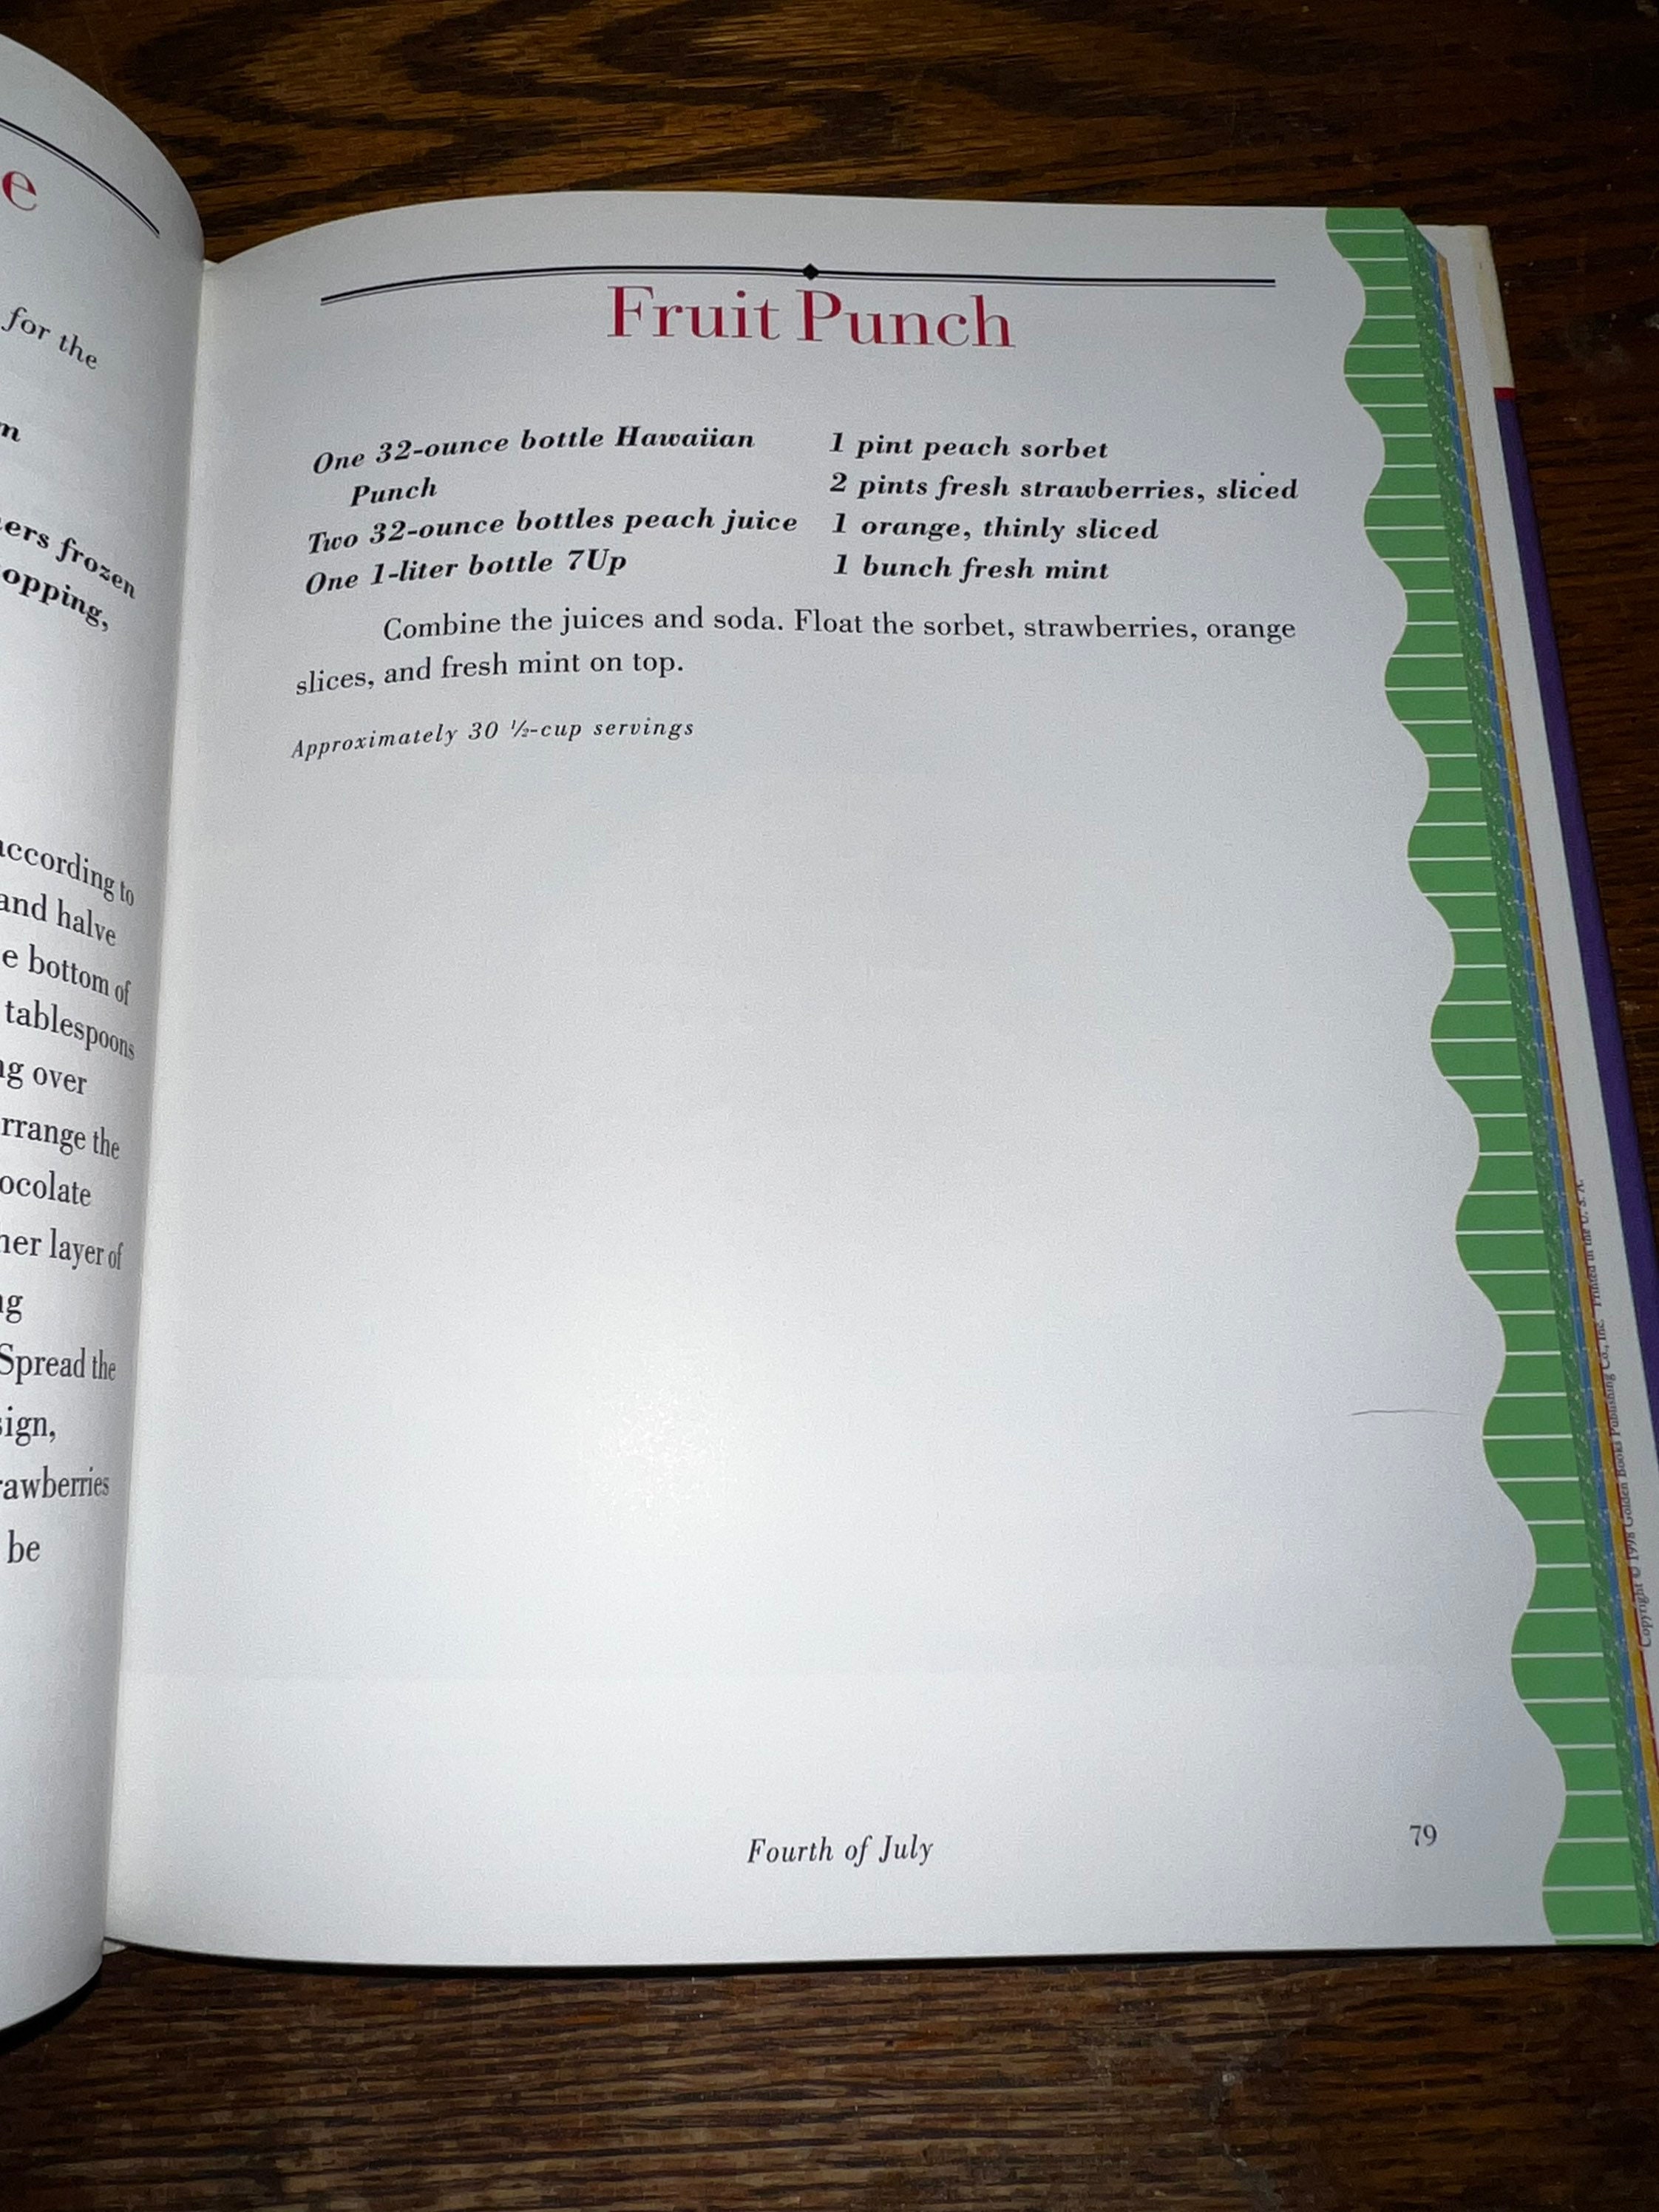 e
for the
m
ers frozen
opping,
according to
and halve
e bottom of
tablespoons
ng over
rrange the
ocolate
her layer of
ng
Spread the
sign,
rawberries
be
Fruit Punch
One 32-ounce bottle Hawaiian
Punch
Two 32-ounce bottles peach juice
One 1-liter bottle 7Up
1 pint peach sorbet
2 pints fresh strawberries, sliced
1 orange, thinly sliced
1 bunch fresh mint
Combine the juices and soda. Float the sorbet, strawberries, orange
slices, and fresh mint on top.
Approximately 30 ½-cup servings
Fourth of July
79
Copyright © 1998 Golden Books Publishing Co., Inc. Printed in the U. S. A.